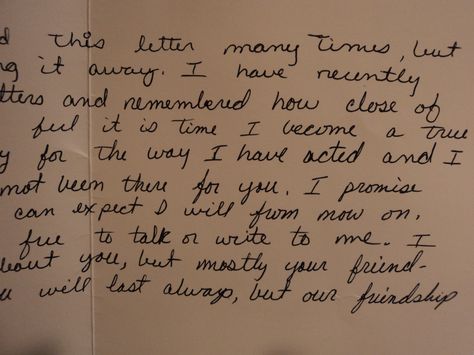 d this letter many times, but
ng it away. I have recently
tters and remembered how close of
feel it is time I become a true
y for the way I have acted and I
not been there for you. I promise
can expect I will from now on.
free to talk or write to me. I
bout you, but mostly your friend-
u will last always, but our friendship